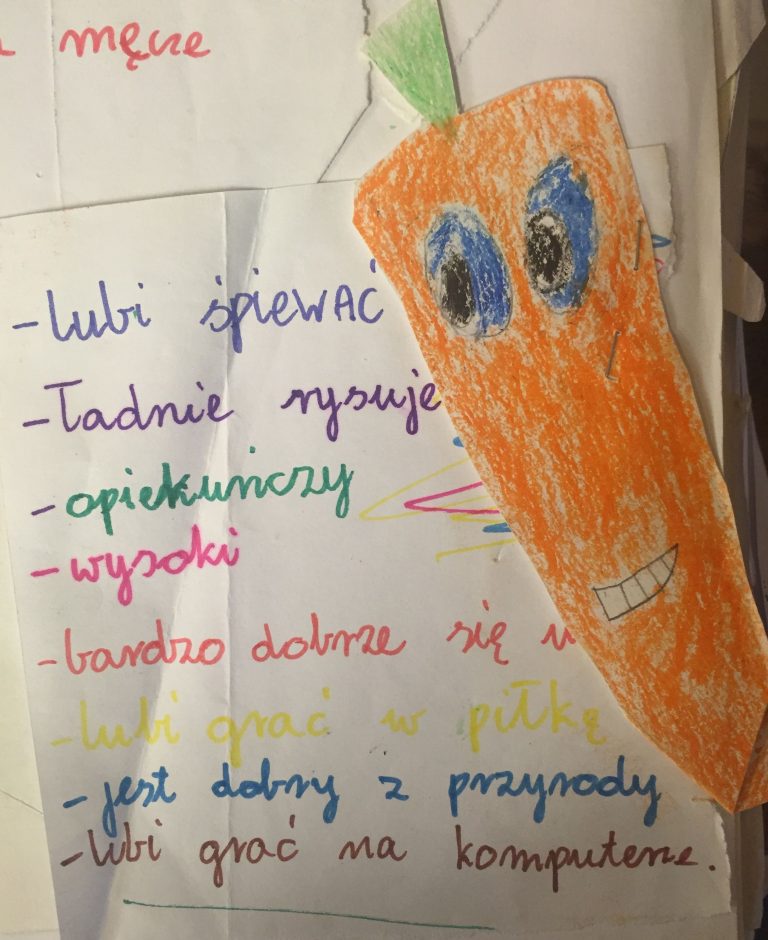 męcze
-lubi śpiewAĆ
-Ładnie rysuje
-opiekuńczy
-wysoki
-bardzo dobrze się
-lubi grać w piłkę
-jest dobry z przyrody
-lubi grać na komputerze.